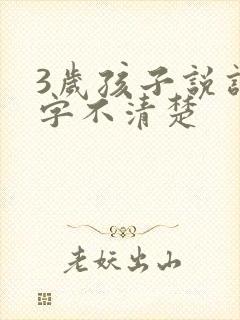 3歲孩子說
字不清楚
老妖出山